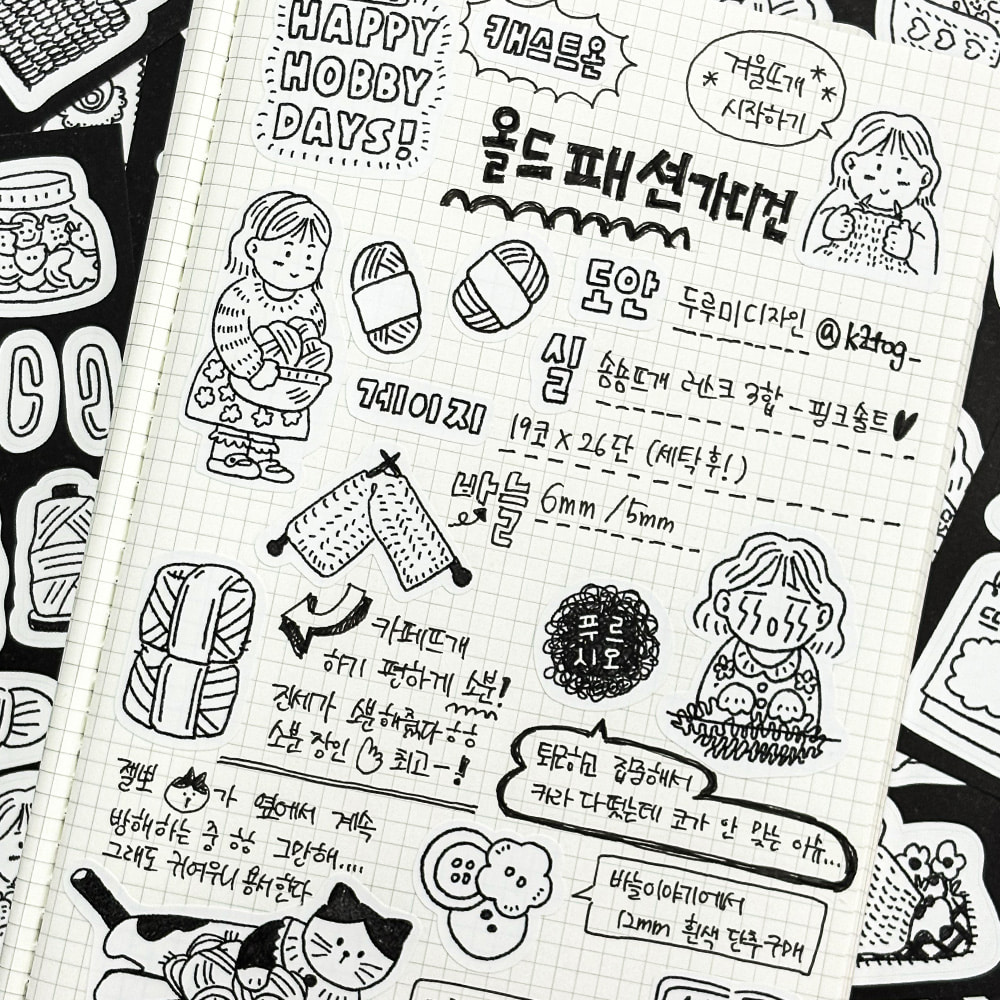 HAPPY
HOBBY
DAYS!
캐스트온
겨울뜨개
시작하기
올드패션가디건
도안 두루미디자인 @k2tog_
실 송송뜨개 러스크 3합 - 핑크솔트
게이지 19코 X 26단 (세탁후!)
바늘 6mm / 5mm
카페뜨개
하기 편하게 소분!
진세가 소분해줬다 ㅎㅎ
소분 장인 최고-!
푸르
시오
퇴근하고 집중해서
카라 다떴는데 코가 안 맞는 이슈...
젤뽀 가 옆에서 계속
방해하는 중 ㅎㅎ 그만해....
그래도 귀여우니 용서한다
바늘이야기에서
12mm 흰색 단추 구매